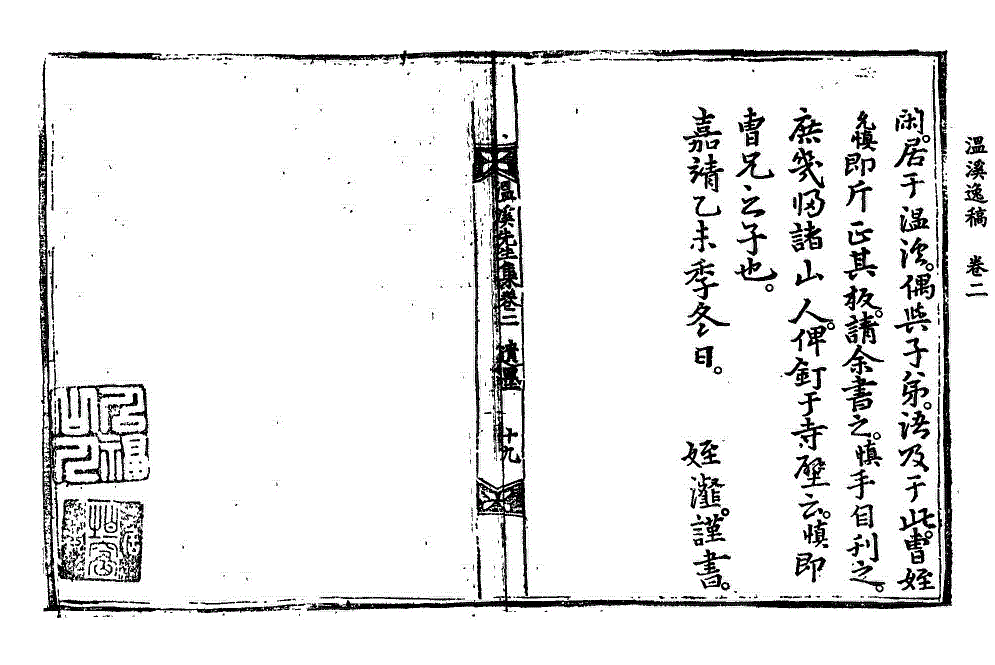 溫溪逸稿 卷二
閑。居于温溪。偶與子弟。语及于此。曺姪
允愼即斤正其板。請余書之。愼手自刊之。
庶幾归諸山人。俾釘于寺壁云。愼即
曺兄之子也。
嘉靖乙未季冬日。 姪瀣。謹書。
温溪先生集卷二 遺墨 十九